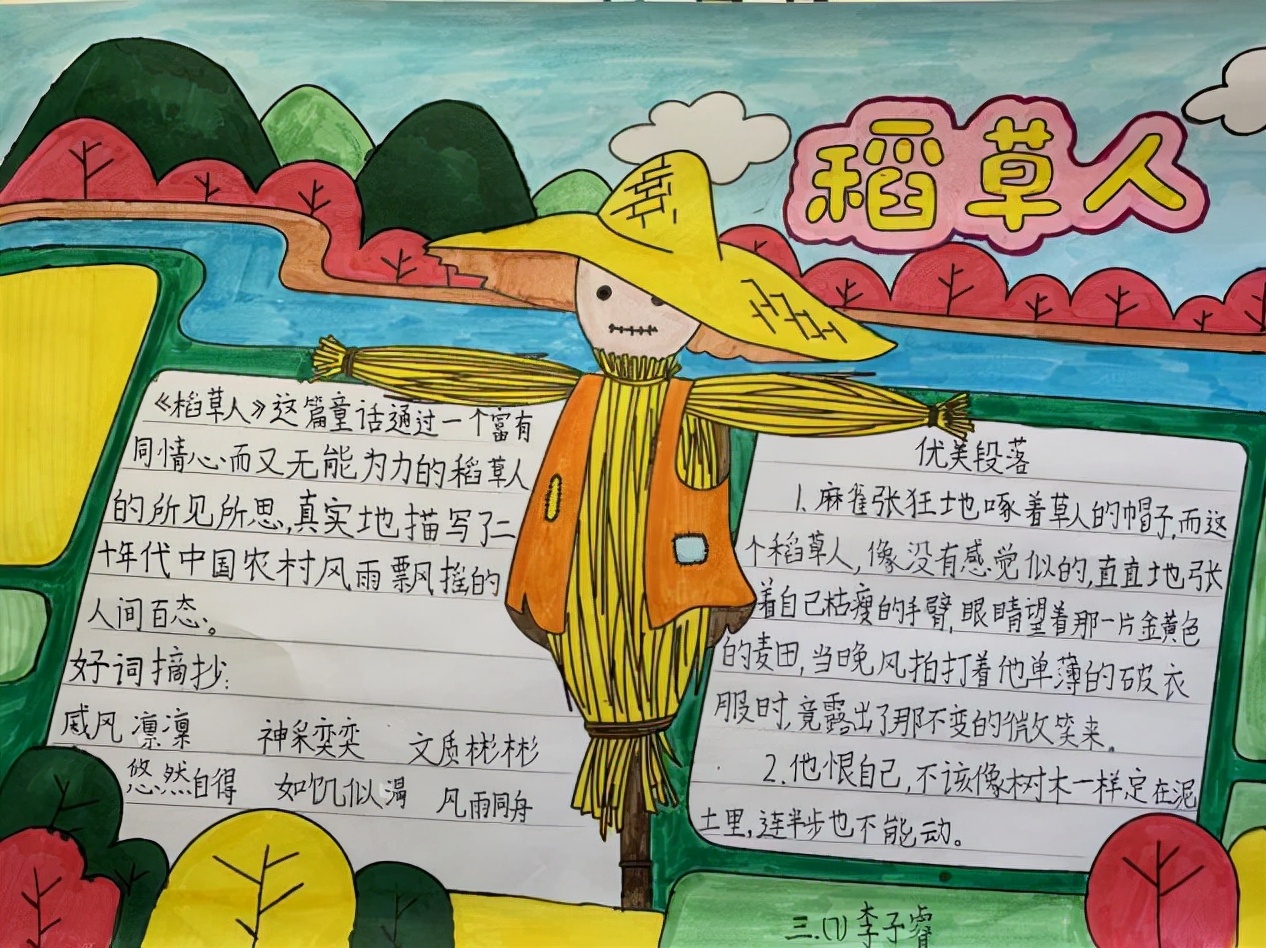 稻草人
《稻草人》这篇童话通过一个富有
同情心而又无能为力的稻草人
的所见所思,真实地描写了二
十年代中国农村风雨飘摇的
人间百态。
好词摘抄:
威风凛凛 神采奕奕 文质彬彬
悠然自得 如饥似渴 风雨同舟
优美段落
1.麻雀张狂地啄着草人的帽子,而这
个稻草人,像没有感觉似的,直直地张
着自己枯瘦的手臂,眼睛望着那一片金黄色
的麦田,当晚风拍打着他单薄的破衣
服时,竟露出了那不变的微笑来。
2.他恨自己,不该像树木一样定在泥
土里,连半步也不能动。
三.(1)李子睿